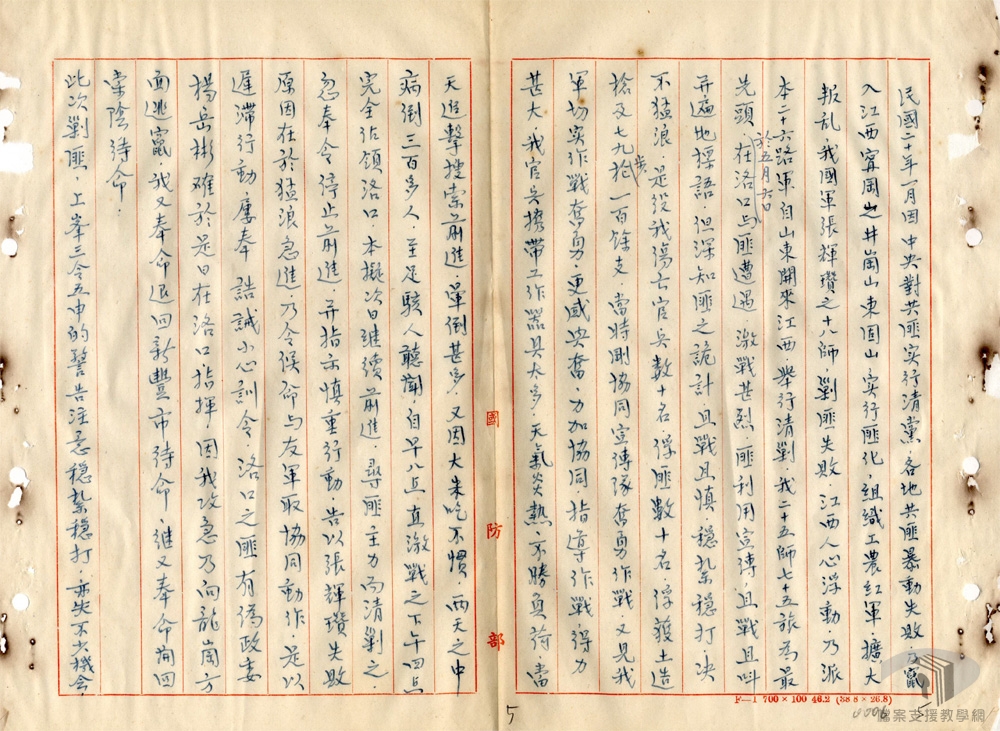 民國二十年一月因中央對共匪实行清黨·各地共匪暴動失敗乃竄
入江西寗岡之井崗山東固山·实行匪化·組織工農红軍·擴大
叛乱·我國軍張輝瓚之十八師·剿匪失敗·江西人心浮動·乃派
本二十六路軍自山東開來江西·举行清剿·我二十五師七十五旅為最
先頭·於五月六日在洛口与匪遭遇·激戰甚烈·匪利用宣傳·且戰且叫
并遍地標語·但深知匪之詭計·且戰且慎·穩紮穩打·决
不猛浪·是役我傷亡官兵數十名·俘匪數十名·俘獲土造
枪及七九步枪一百餘支·當時剿協同宣傳隊奮勇作戰·又見我
軍切实作戰奮勇·更感央奮·力加協同·指導作戰·得力
甚大·我官兵携带工作器具太多·天氣炎熱·不勝負荷·當
天進擊搜索前進·暈倒甚多·又因大米吃不慣·两天之中
病倒三百多人·至足駭人聽闻·自早八点直激戰之下午四点
完全佔領洛口·本擬次日继續前進·尋匪主力而清剿之·
忽奉令停止前進·并指示慎重行動·告以張輝瓚失敗
原因在於猛浪急進·乃令候命与友軍取協同動作·是以
遲滯行動·屡奉 誥誡小心訓令·洛口之匪有偽政委
楊岳彬確於是日在洛口指揮·因我攻急乃向龍崗方
面逃竄·我又奉命退回新豐市待命·继又奉命闻回
棠陰待命·
此次剿匪·上峯三令五申的警告注意穩紮穩打·亦失不少機会
國防部
F—1 700×100 46.2 (38.8×26.8)
5
5
檔案支援教學網